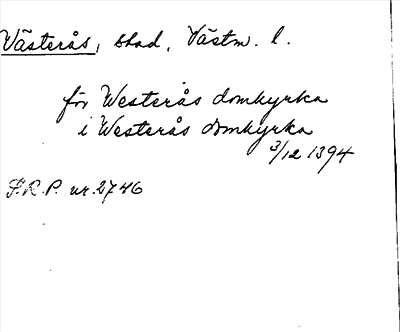 Västerås, stad, Västm. l.
för Westerås domkyrka
i Westerås domkyrka
3/12 1394
S.R.P. nr. 2746